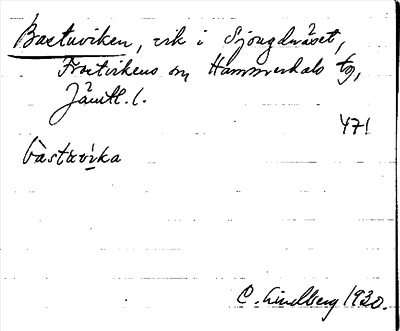 Bastuviken, vik i Sjougdnäset,
Frostvikens sn, Hammerdals tg,
Jämtl. l.
471
bàstuvìka
C. Lindberg 1930.